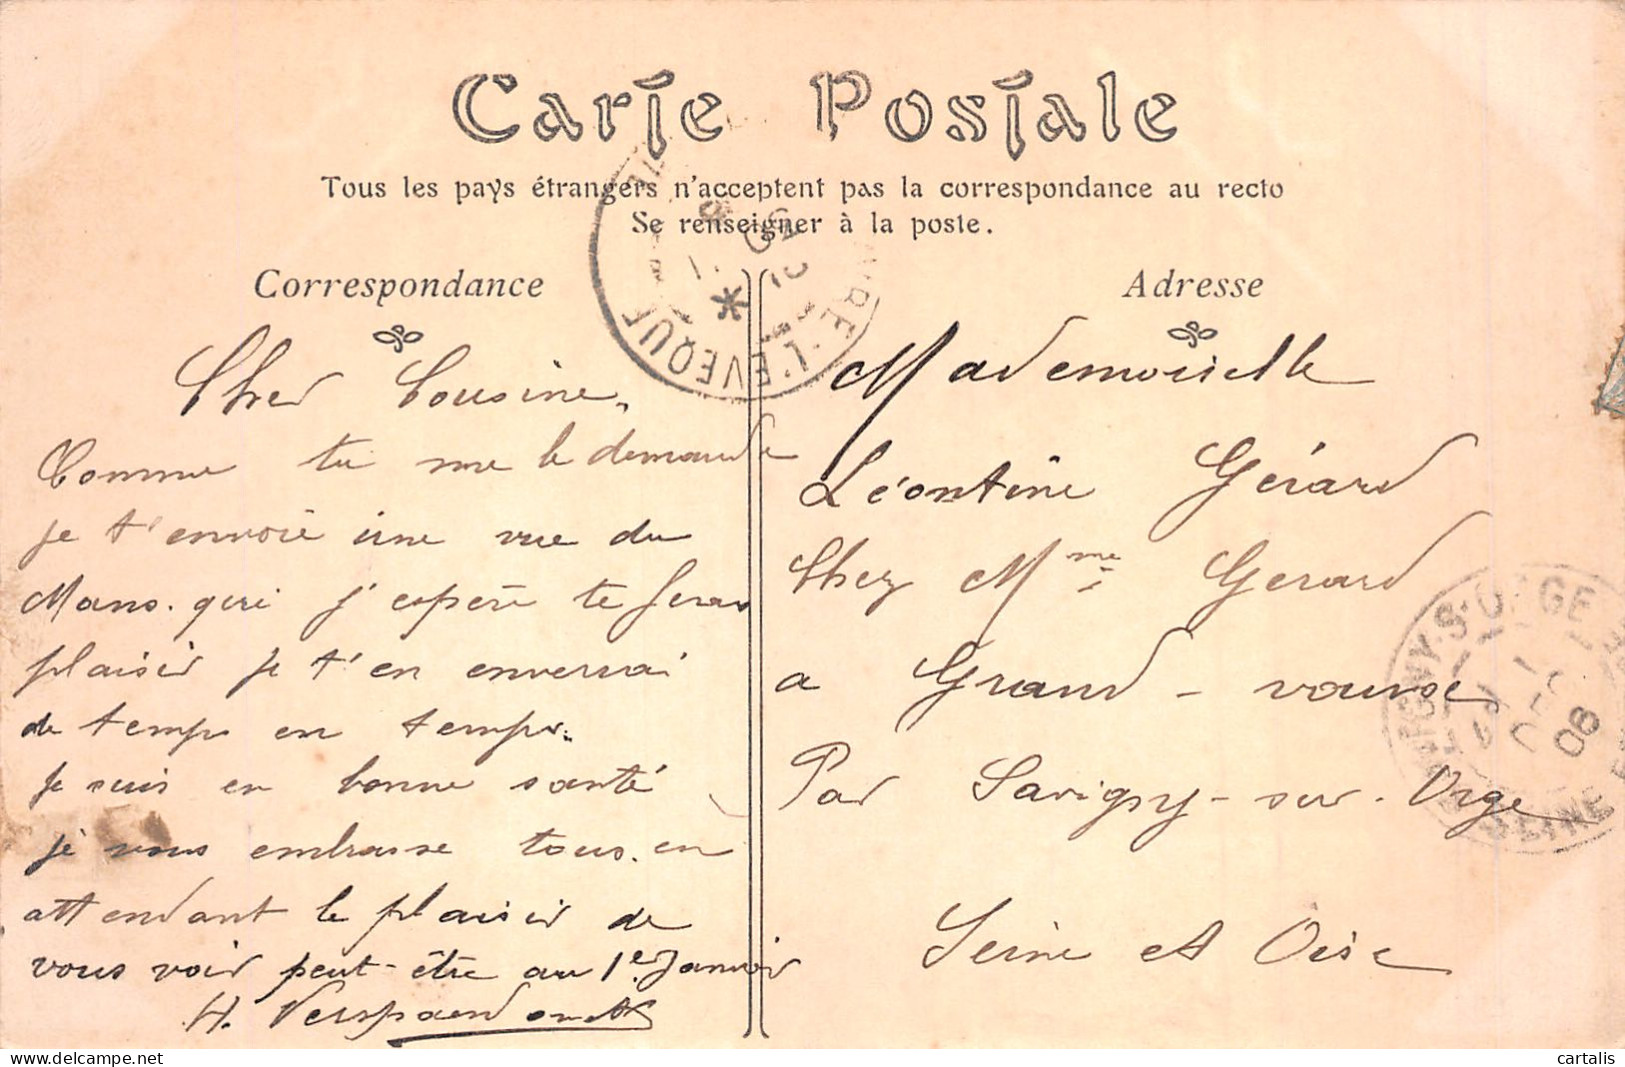 Carte Postale
Tous les pays étrangers n'acceptent pas la correspondance au recto
Se renseigner à la poste.
Correspondance
Cher Cousine,
Comme tu me le demande
je t'envoie une vue du
Mans. qui j'espère te feras
plaisir je t'en enverrai
de temps en temps.
je suis en bonne santé
je vous embrasse tous. en
attendant le plaisir de
vous voir peut-être au 1e Janvier
H.
Adresse
Mademoiselle
Léontine Gérard
Chez Mme Gerard
a Grand-vourse
Par Savigny-sur-Orge
Seine et Oise
L'EVEQUE
S. ORGE
08
SEINE
cartalis